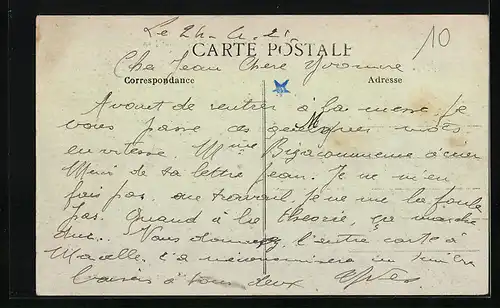 Le 24-4-25
10
CARTE POSTALE
Cher Jean Chère Yvonne
Correspondance Adresse
Avant de rentrer à la messe je
vous passe ces quelques mots
en vitesse Mme
Merci de ta lettre Jean. Je ne m'en
fais pas, du travail je ne me la foule
pas. Quand à la théorie, ça marche
dur. Vous donnerez l'autre carte à
Marcelle,
Baisers à tous deux